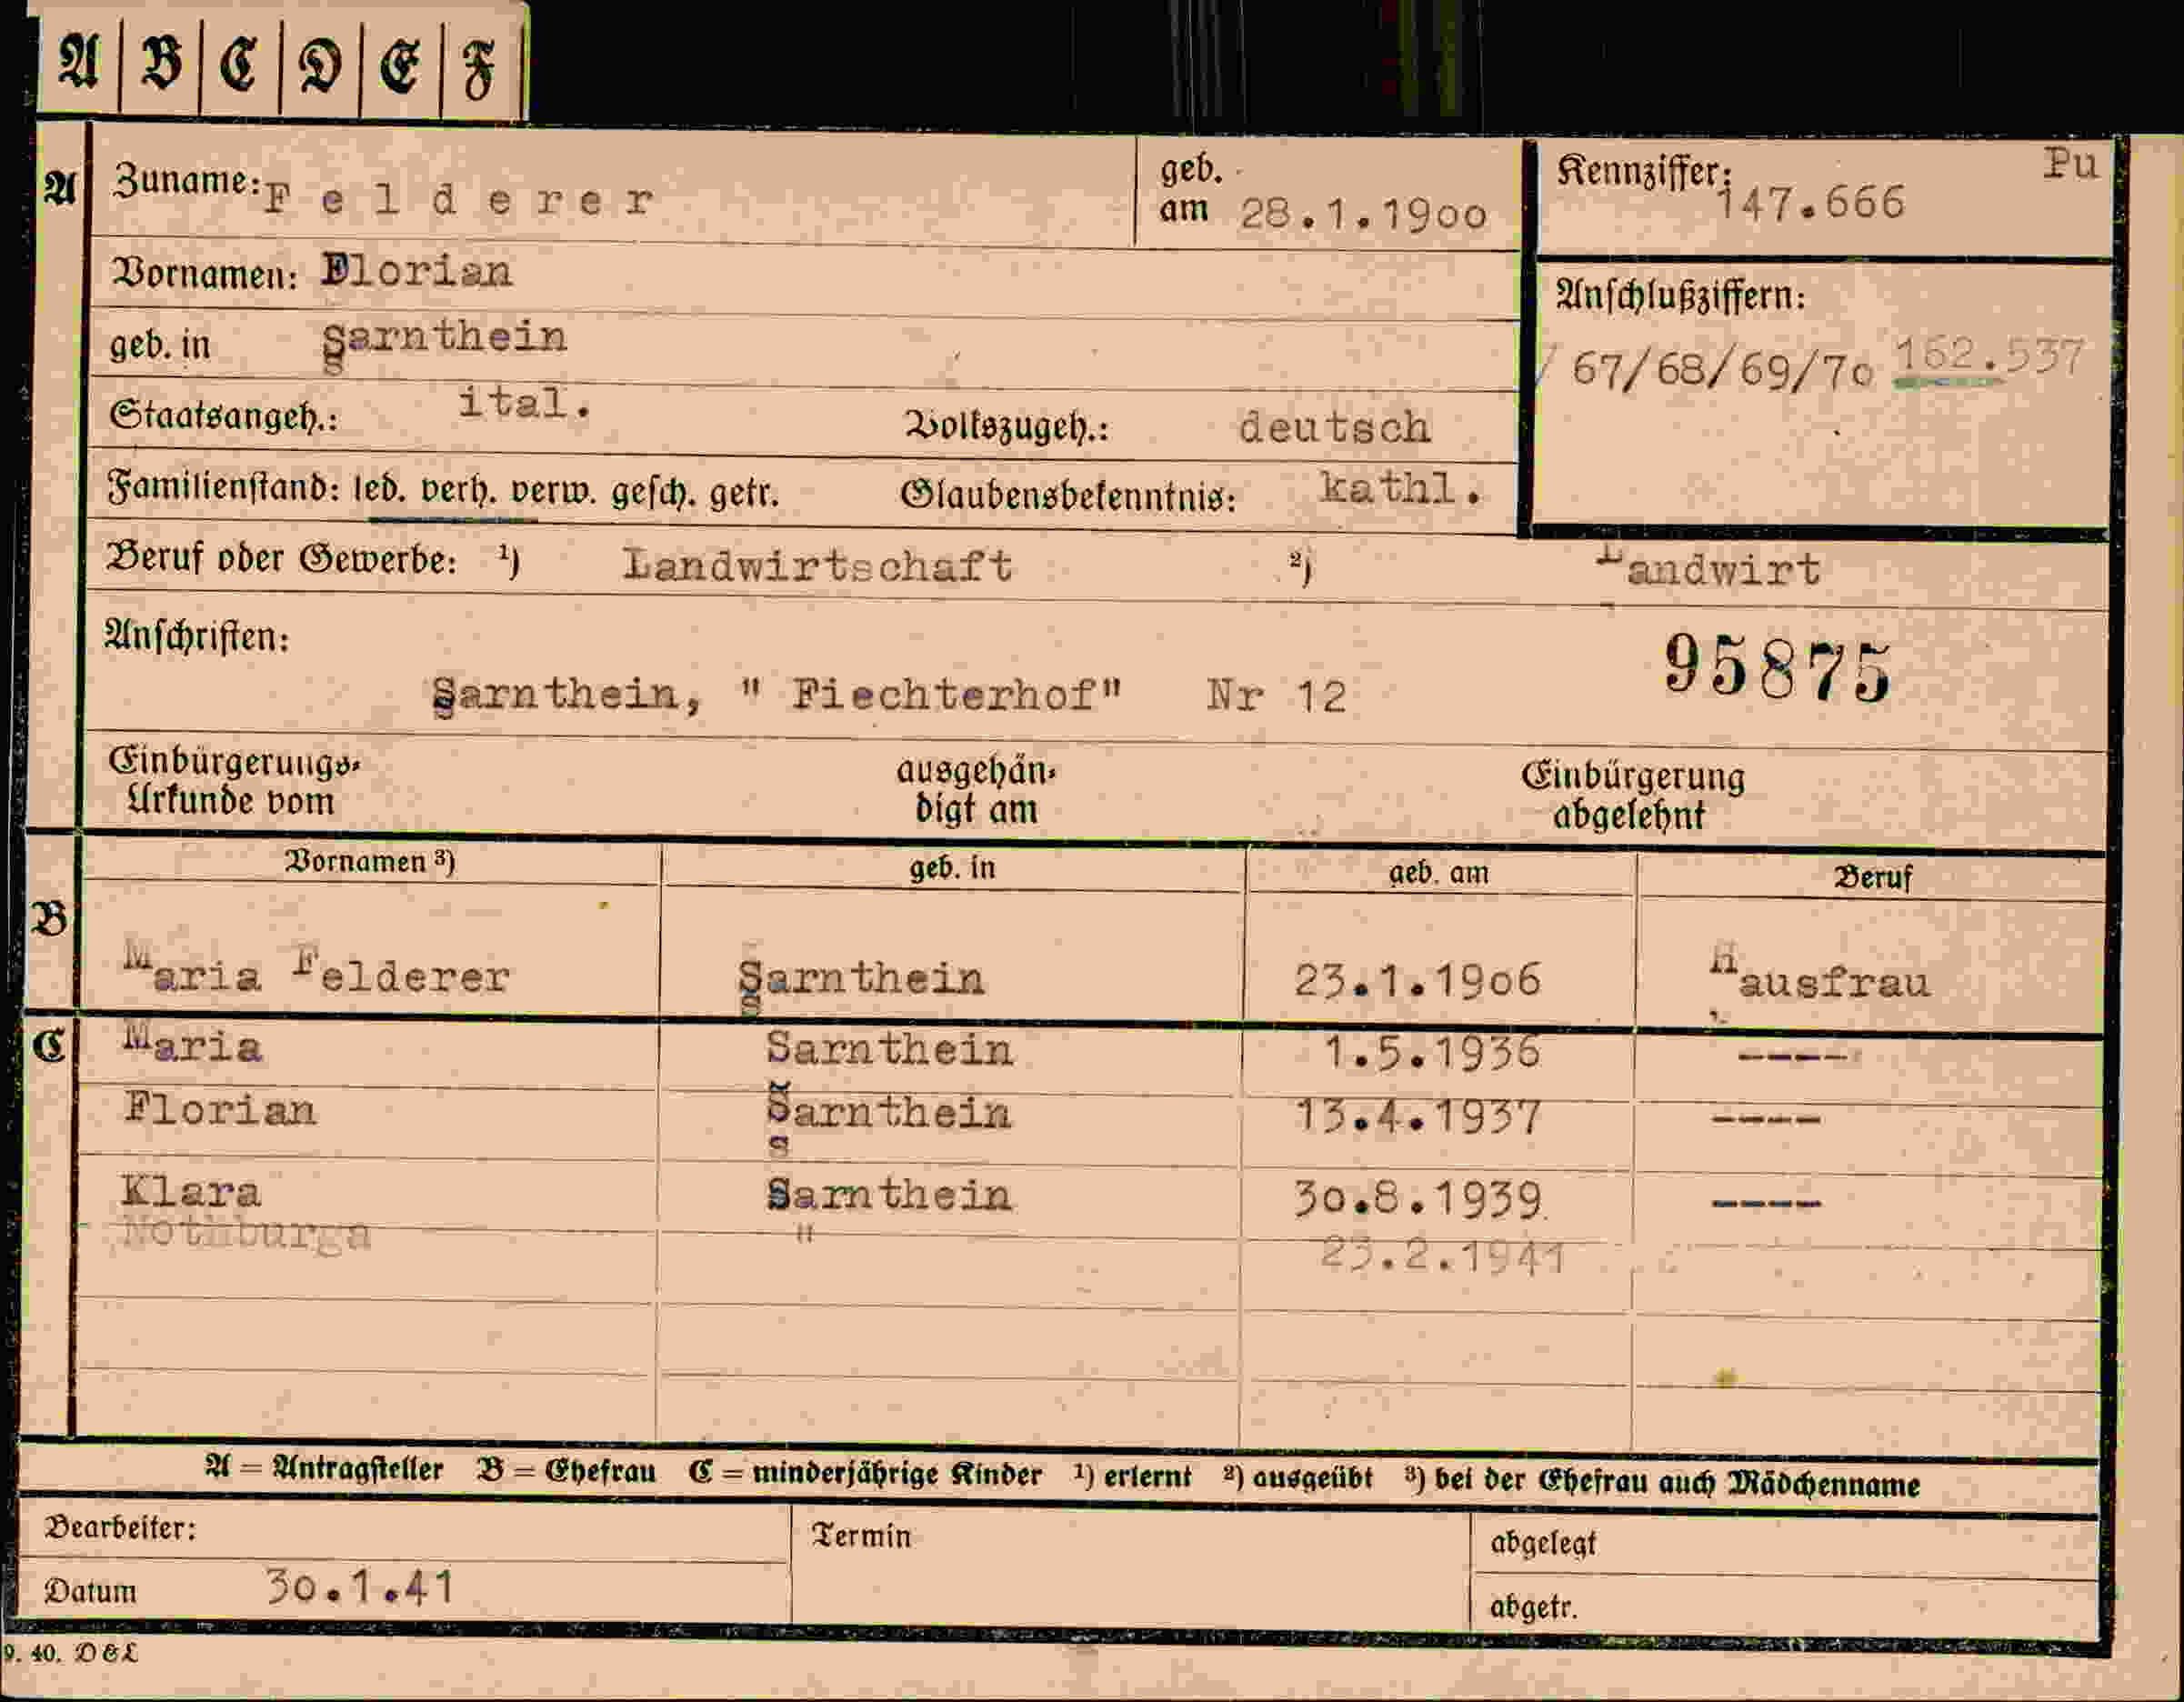 A B C D E F
A Zuname: Felderer geb. am 28.1.1900 Kennziffer: 147.666 Pu
Vornamen: Florian
Anschlußziffern:
geb. in Sarnthein
/ 67/68/69/70 162.537
Staatsangeh.: ital. Volkszugeh.: deutsch
Familienstand: led. verh. verw. gesch. getr. Glaubensbekenntnis: kathl.
Beruf oder Gewerbe: 1) Landwirtschaft 2) Landwirt
Anschriften: 95875
Sarnthein, " Fiechterhof" Nr 12
Einbürgerungs- ausgehän- Einbürgerung
Urkunde vom digt am abgelehnt
Vornamen 3) geb. in geb. am Beruf
B
Maria Felderer Sarnthein 23.1.1906 Hausfrau
C Maria Sarnthein 1.5.1936 ----
Florian Sarnthein 13.4.1937 ----
Klara Sarnthein 30.8.1939 ----
Nothburga " 23.2.1941
A = Antragsteller B = Ehefrau C = minderjährige Kinder 1) erlernt 2) ausgeübt 3) bei der Ehefrau auch Mädchenname
Bearbeiter: Termin abgelegt
Datum 30.1.41 abgetr.
9. 40. D&L